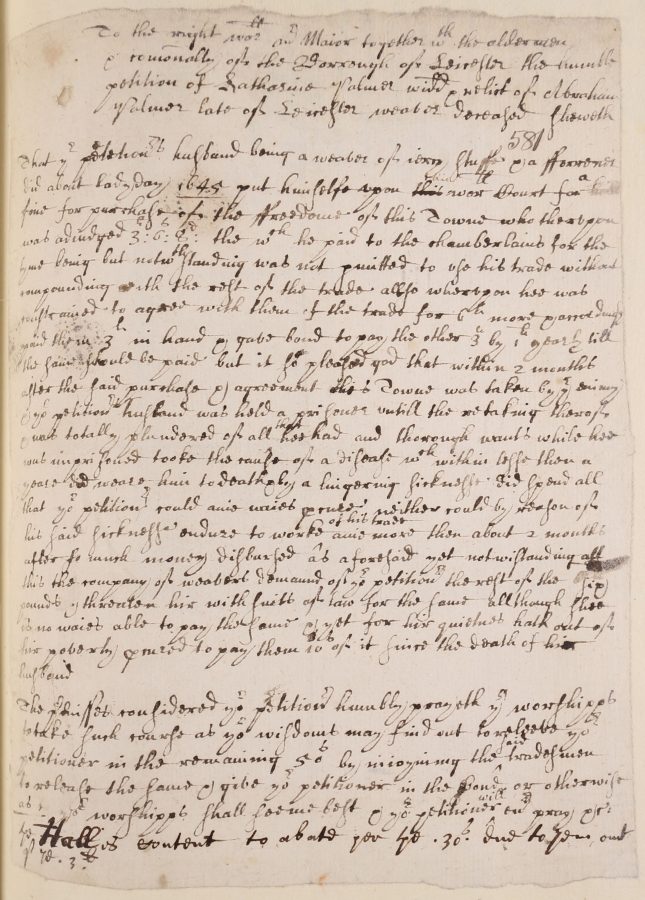 To the right wor:ll mr Maior together wth the aldermen
& comonalty of the Borrough of Leicester the humble
petition of Katharine Palmer widd & relict of Abraham
Palmer late of Leicester weaver deceased sheweth
581
That yr petetionrs husband being a weaver of iersy stuffe & a fforrener
did about ladyday 1645 put himselfe upon this wor Court for a
fine for purchase of the ffreedome of this Towne who therupon
was adiudged 3li 6s 8d: the wch he paid to the chamberlains for the
tyme being but notwthstanding was not pmitted to use his trade without
compounding with the rest of the trade allsoe wherupon hee was
constrained to agree with them of the trade for 6li more &
paid them 3li in hand & gave bond to pay the other 3li by 1li yearly till
the same should be paid but it soe pleased god that within 2 months
after the said purchase & agreement this Towne was taken by ye enimy
& yor petitionrs husband was held a prisoner untill the retaking therof
& was totally plundered of all that hee had and thorough wants while hee
was imprisoned tooke the cause of a disease wch within lesse then a
yeare did weare him to death & by a lingering sicknesse did spend all
that yor petitionr could anie waies pcure neither could by reason of
his said sicknesse endure to worke of his trade anie more then about 2 months
after so much money disbursed as aforesaid yet notwistanding all
this the company of weavers demaund of yor petitionr the rest of the six
pounds & threaten hir with suits of law for the same allthough shee
is no waies able to pay the same & yet for hir quietnes hath out of
hir poverty pcured to pay them 10s of it since the death of hir
husband
The pmisses considered yor petitionr humbly prayeth yr worshipps
to take such course as yor wisdoms may find out to releeve yor
petitioner in the remaining 50s by inioyning the said tradesmen
to release the same & give yor petitioner in the bond or otherwise
as yor worshipps shall seeme best & yor petitioner will evr pray &c:
Hall is Content to abate her ye .30s. due to him, out
of ye . 3li